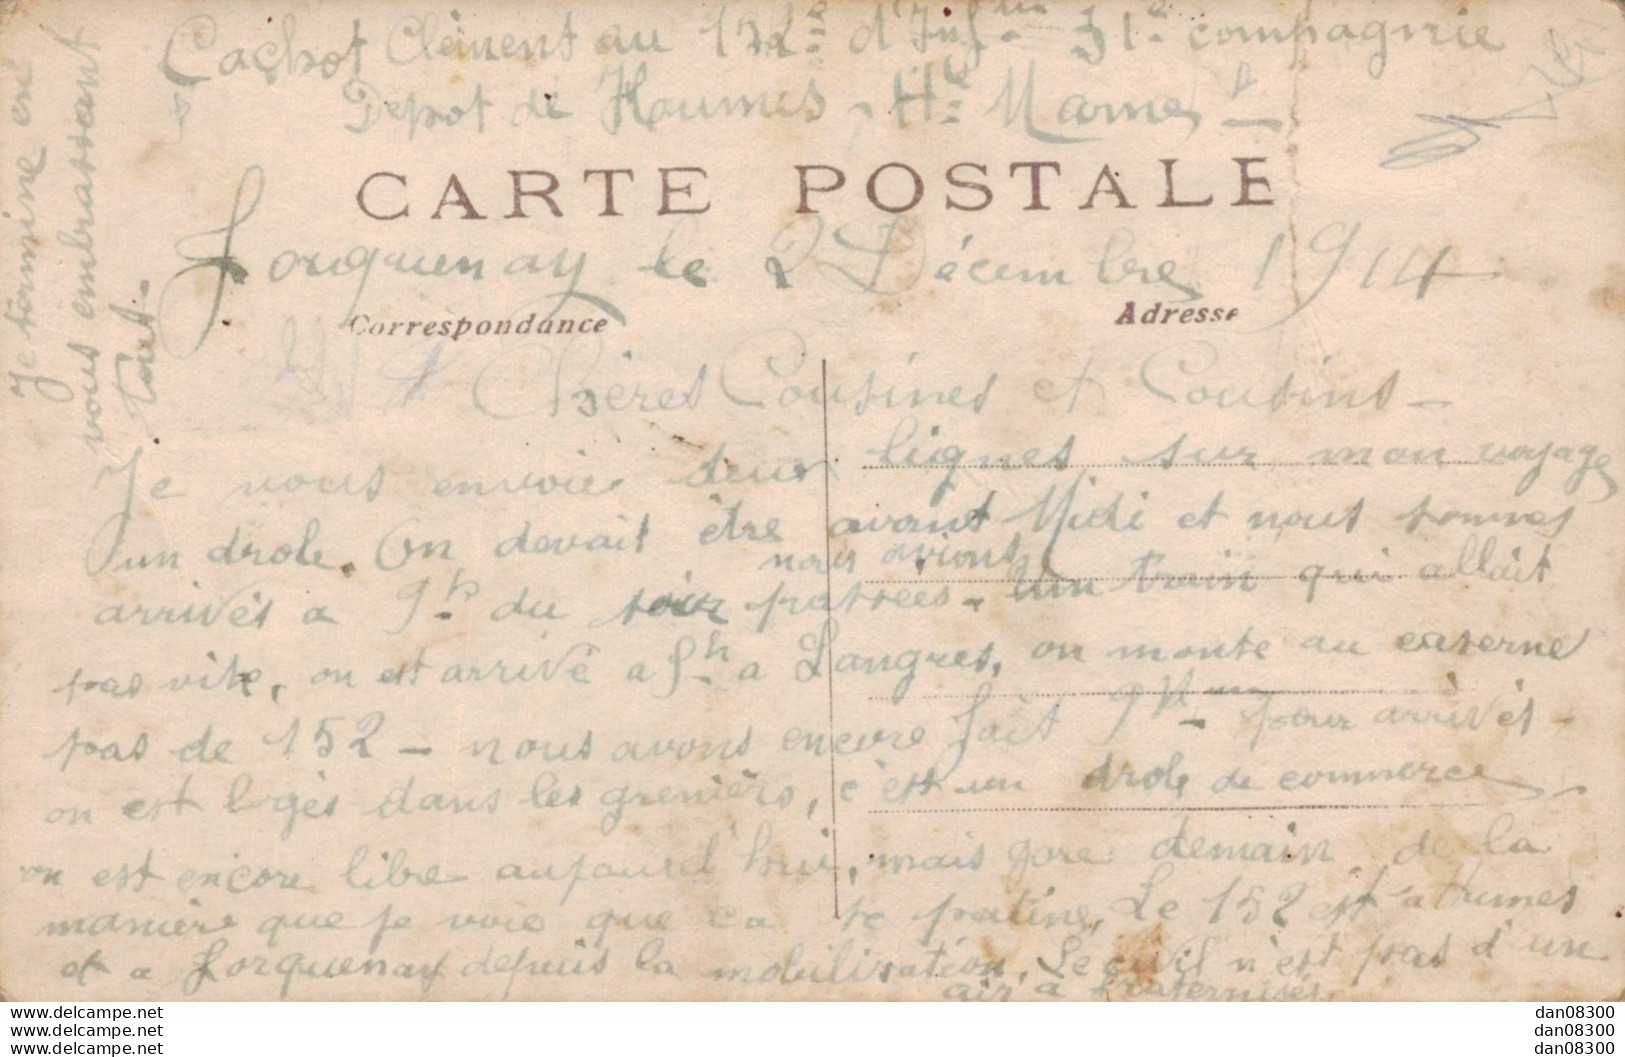 Cachot Clément au 152e d'Infrie 31e compagnie
Depot de Humes, Hte Marne
CARTE POSTALE
Jorquenay le 2 Décembre 1914
Correspondance
Adresse
Chères Cousines et Cousins -
Je vous envoie deux lignes sur mon voyage
un drole. On devait être avant Midi et nous sommes
nous avions
arrivés a 9h du soir passées. Un train qui allait
pas vite, on est arrivé a 5h a Langres, on monte au caserne
pas de 152 - nous avons encore fait 9Km pour arrivés -
on est logés dans les greniers, c'est un drole de commerce.
on est encore libre aujourd'hui, mais gare demain de la
manière que je voie que ca se patine. Le 152 est a Humes
et a Jorquenay depuis la mobilisation. Le civil n'est pas d'un
air a fraternisés.
Je termine en
vous embrassant
tous -
dan08300
dan08300
dan08300